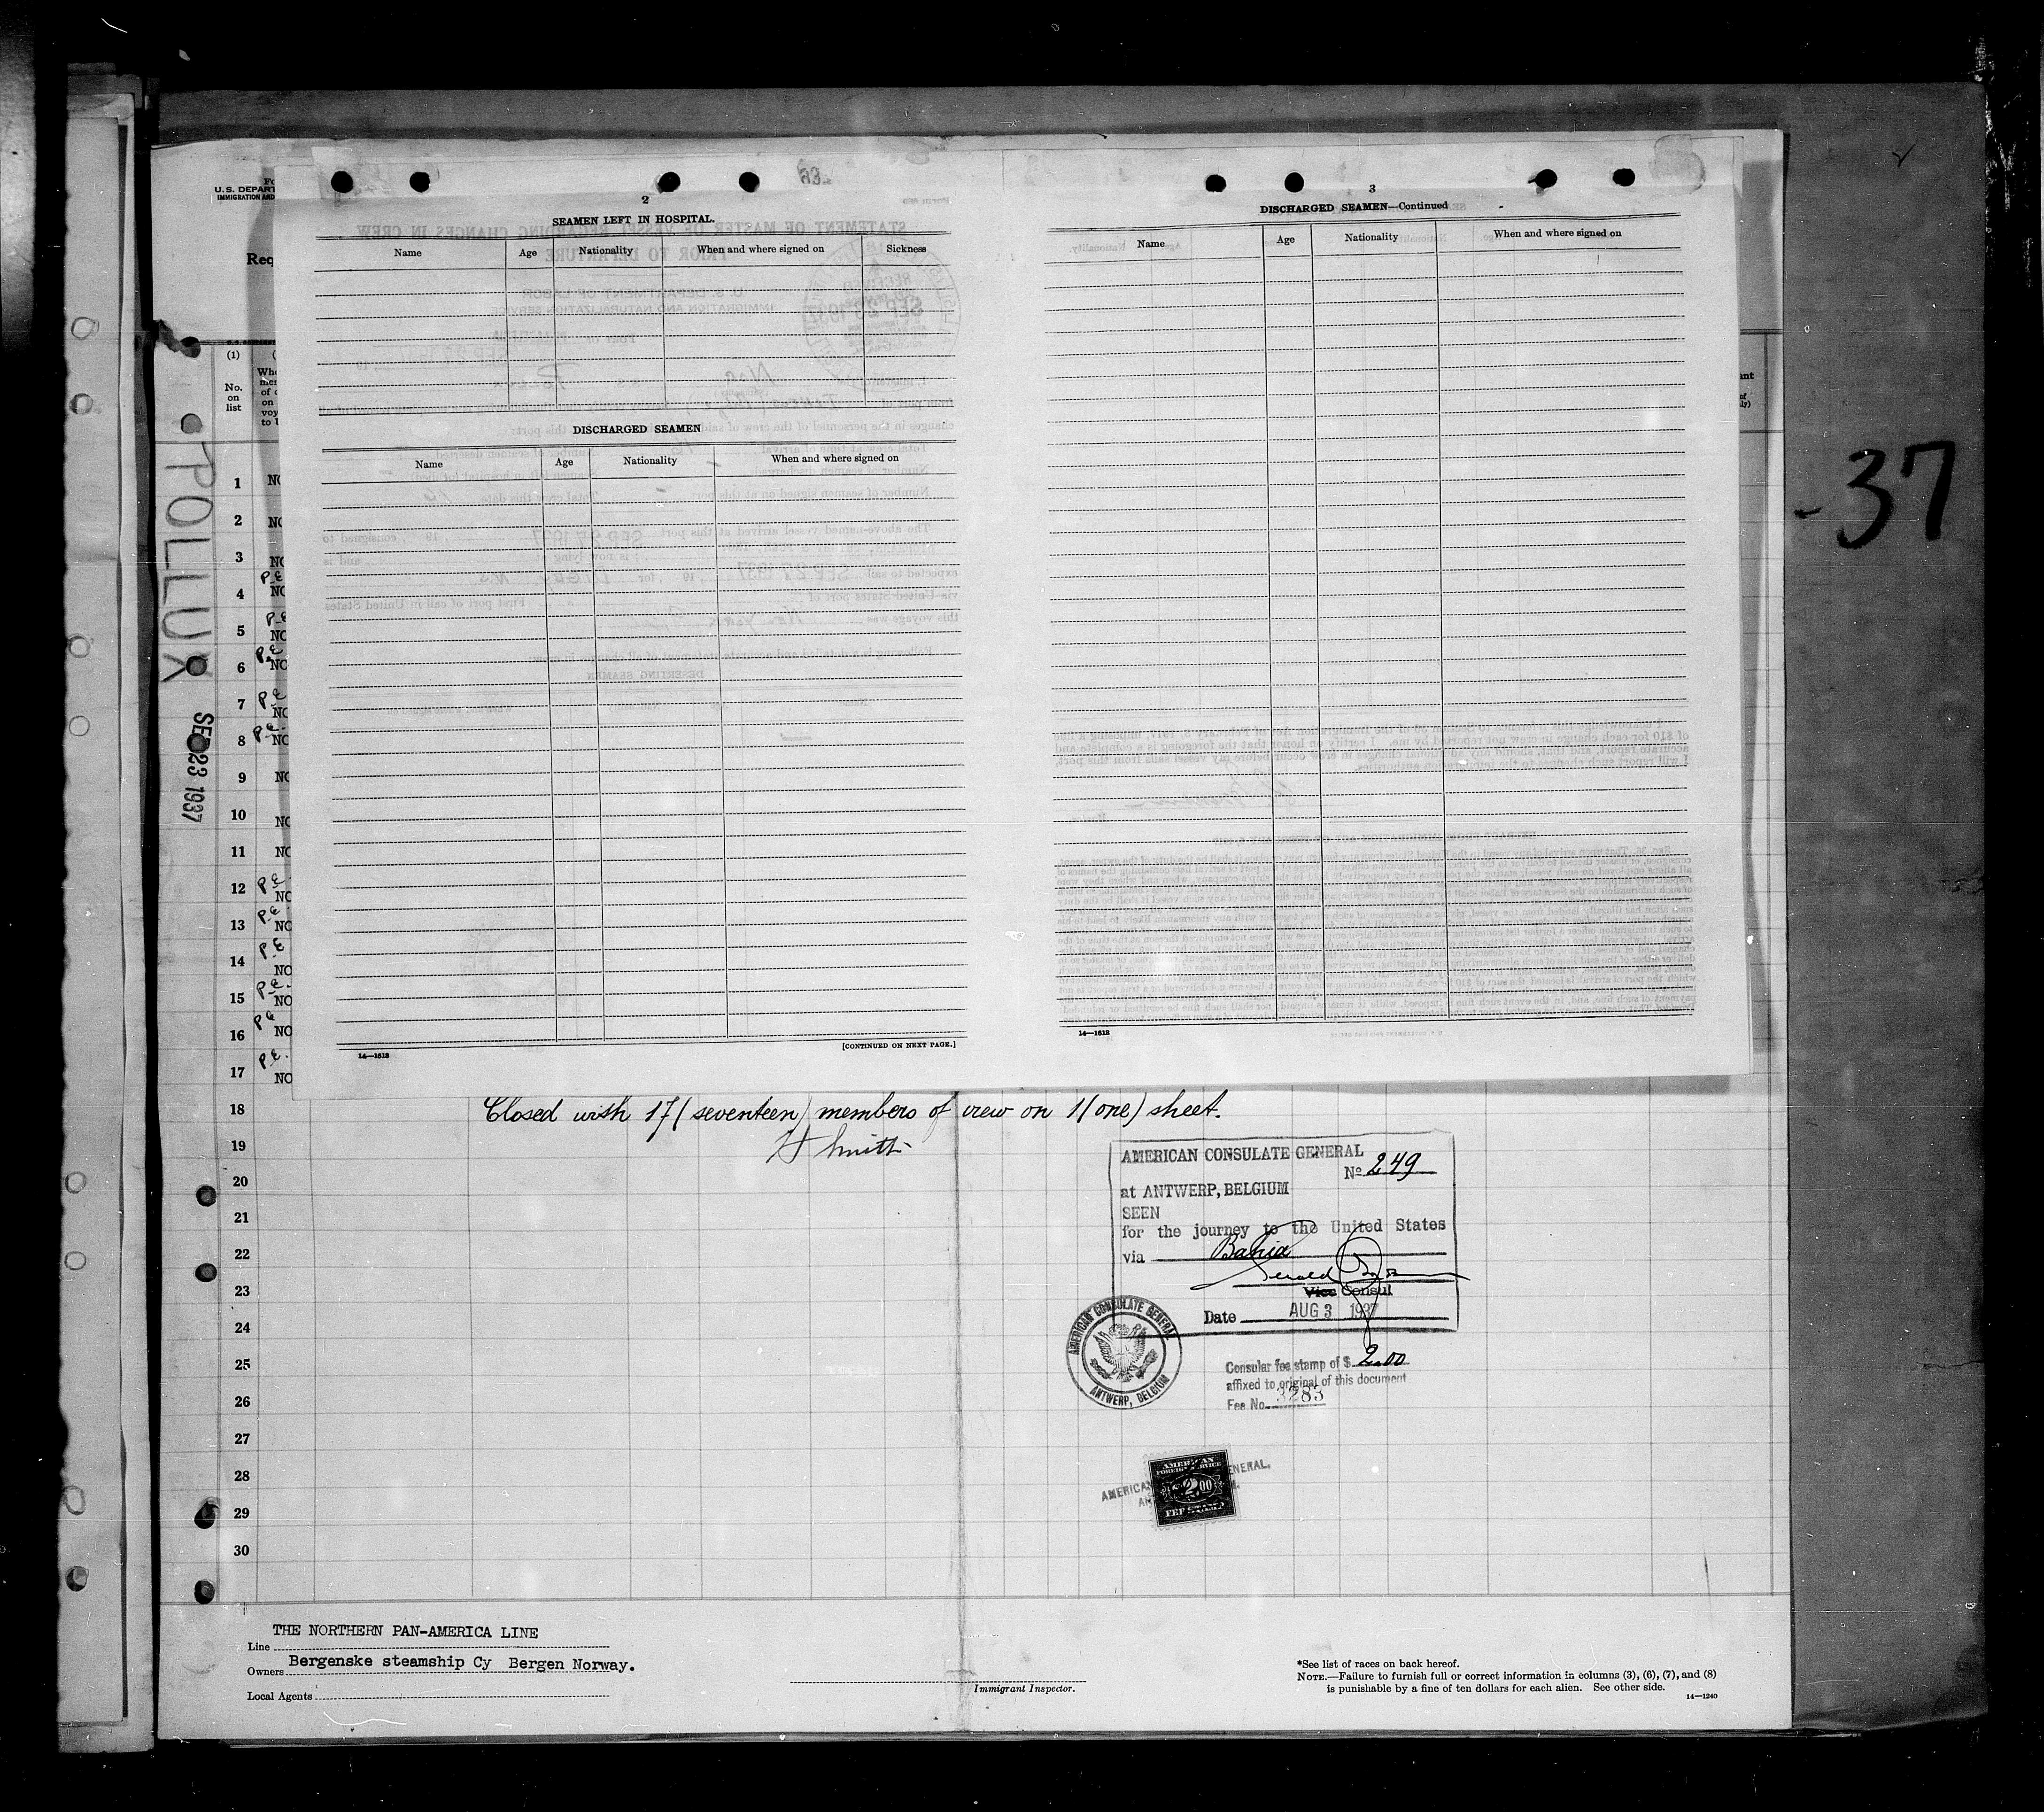 2
SEAMEN LEFT IN HOSPITAL.
Name Age Nationality When and where signed on Sickness
DISCHARGED SEAMEN
Name Age Nationality When and where signed on
14—1613
[CONTINUED ON NEXT PAGE.]
3
DISCHARGED SEAMEN—Continued
Name Age Nationality When and where signed on
14—1613
U.S. DEPART
IMMIGRATION AND
Req
(1)
No.
on
list
POLLUX
SEP 23 1937
- 37
1 NO
2 NO
3 NO
P.E
4 NO
P.E
5 NO
P.E
6 NO
P.E
7 NO
P.E.
8 NO
9 NO
10 NO
11 NO
12 P.E.
NO
P.E.
13 NO
P.E
14 NO
P.E.
15 NO
P.E
16 NO
P.E.
17 NO
18
Closed with 17 (seventeen) members of crew on 1 (one) sheet.
19
H Smitt
20
21
22
23
24
25
26
27
28
29
30
AMERICAN CONSULATE GENERAL
No. 249
at ANTWERP, BELGIUM
SEEN
for the journey to the United States
via Bahia
Vice Consul
Date AUG 3 1937
AMERICAN CONSULATE GENERAL
ANTWERP, BELGIUM
Consular fee stamp of $ 2.00
affixed to original of this document
Fee No. 3283
AMERICAN
FOREIGN SERVICE
$2.00
FEE STAMP
THE NORTHERN PAN-AMERICA LINE
Line
Owners Bergenske steamship Cy Bergen Norway.
Local Agents
Immigrant Inspector.
*See list of races on back hereof.
NOTE.—Failure to furnish full or correct information in columns (3), (6), (7), and (8)
is punishable by a fine of ten dollars for each alien. See other side.
14—1240